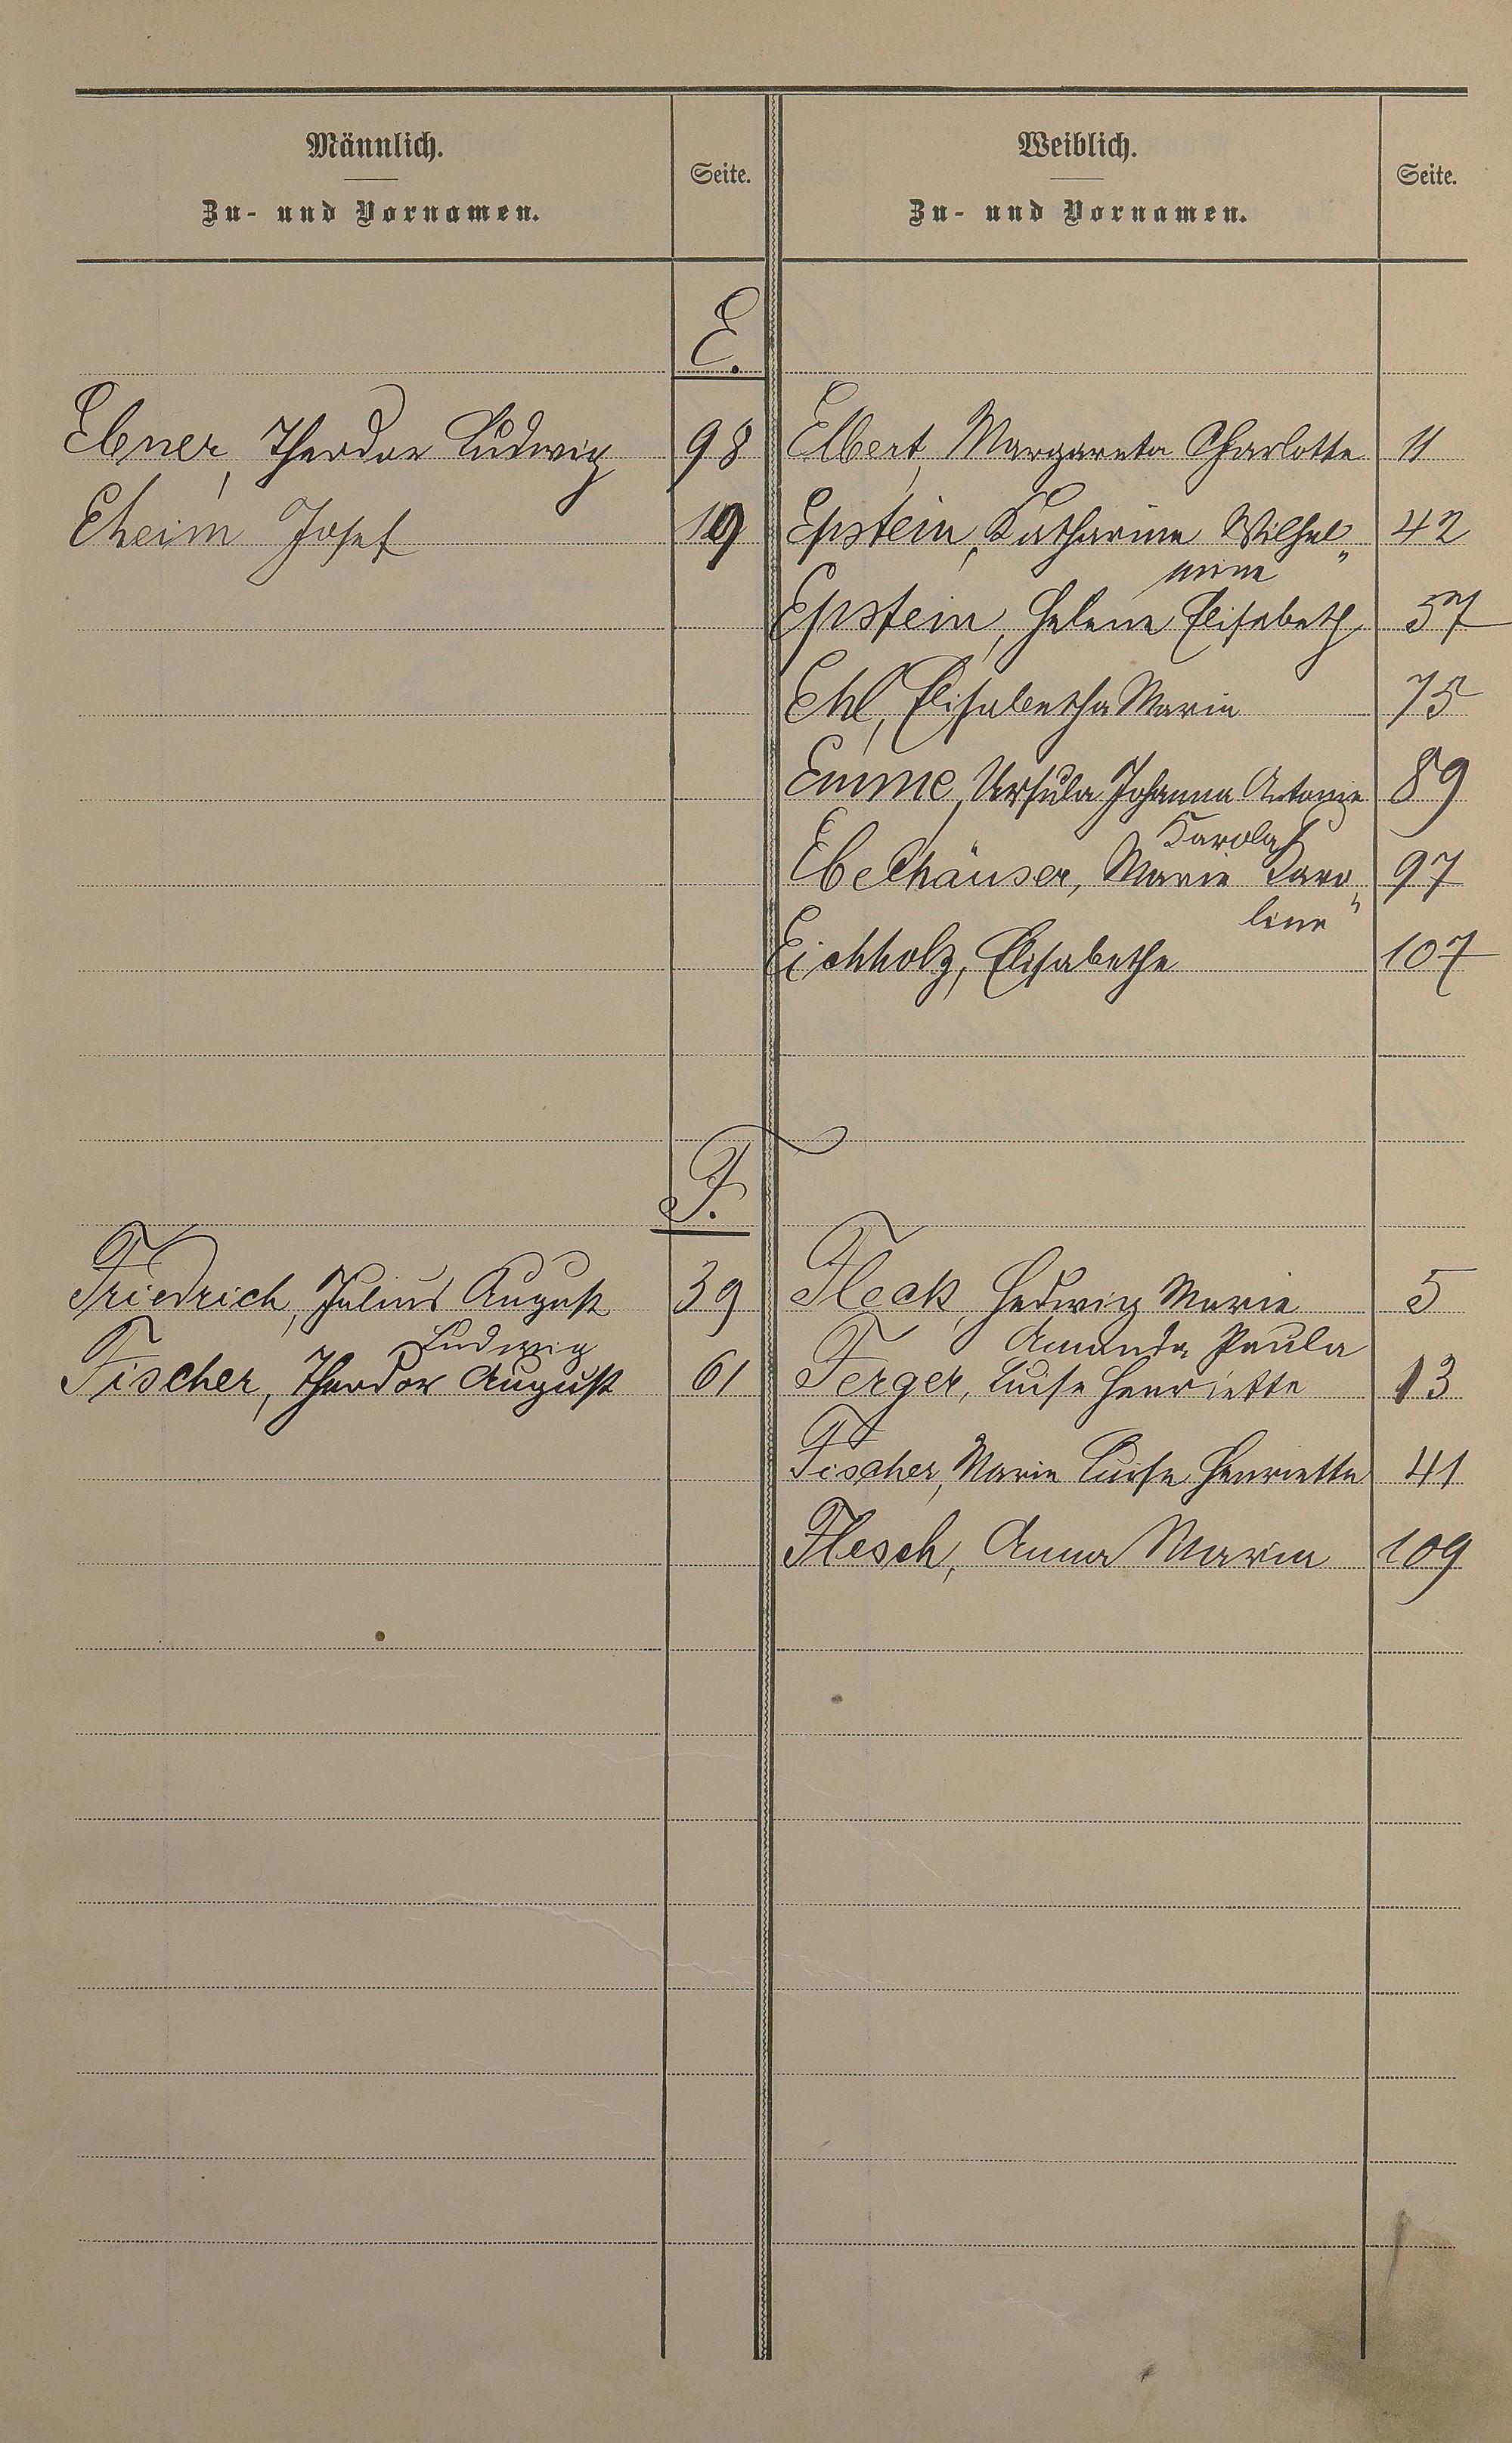 Männlich.
Zu- und Vornamen.
Seite.
Weiblich.
Zu- und Vornamen.
Seite.
E.
Ebner, Theodor Ludwig 98
Elbert, Margareta Charlotte 11
Eheim Josef 19
Epstein, Katharine Wilhel„
mine 42
Epstein, Helene Elisabeth 57
Ehl, Elisabetha Maria 75
Emme, Ursula Johanna Antonie
Karola 89
Ebelhäuser, Marie Karo„
line 97
Eichholz, Elisabethe 107
F.
Friedrich, Julius August
Ludwig 39
Fleck, Hedwig Marie 5
Fischer, Theodor August 61
Amanda Paula
Ferger, Luise Henriette 13
Fischer, Marie Luise Henriette 41
Flesch, Anna Maria 109